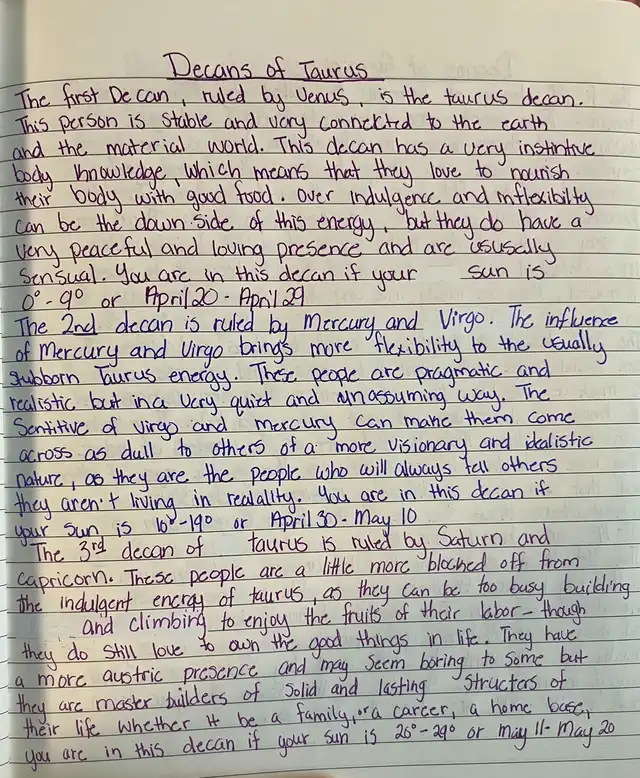 Decans of Taurus
The first Decan, ruled by Venus, is the taurus decan.
This person is stable and very connected to the earth
and the material world. This decan has a very instintive
body knowledge, which means that they love to nourish
their body with good food. over indulgence and inflexibilty
can be the down side of this energy, but they do have a
very peaceful and loving presence and are ususally
sensual. You are in this decan if your sun is
0°-9° or April 20-April 29
The 2nd decan is ruled by Mercury and Virgo. The influence
of Mercury and Virgo brings more flexibility to the usually
stubborn Taurus energy. These people are pragmatic and
realistic but in a very quiet and unassuming way. The
Sentitive of Virgo and mercury can make them come
across as dull to others of a more visionary and idealistic
nature, as they are the people who will always tell others
they aren't living in realality. You are in this decan if
your sun is 10°-19° or April 30-May 10
The 3rd decan of taurus is ruled by Saturn and
Capricorn. These people are a little more blocked off from
the indulgent energy of taurus, as they can be too busy building
and climbing to enjoy the fruits of their labor - though
they do still love to own the good things in life. They have
a more austric presence and may seem boring to some but
they are master builders of solid and lasting structers of
their life whether it be a family, or a career, a home base,
you are in this decan if your sun is 20°-29° or May 11-May 20